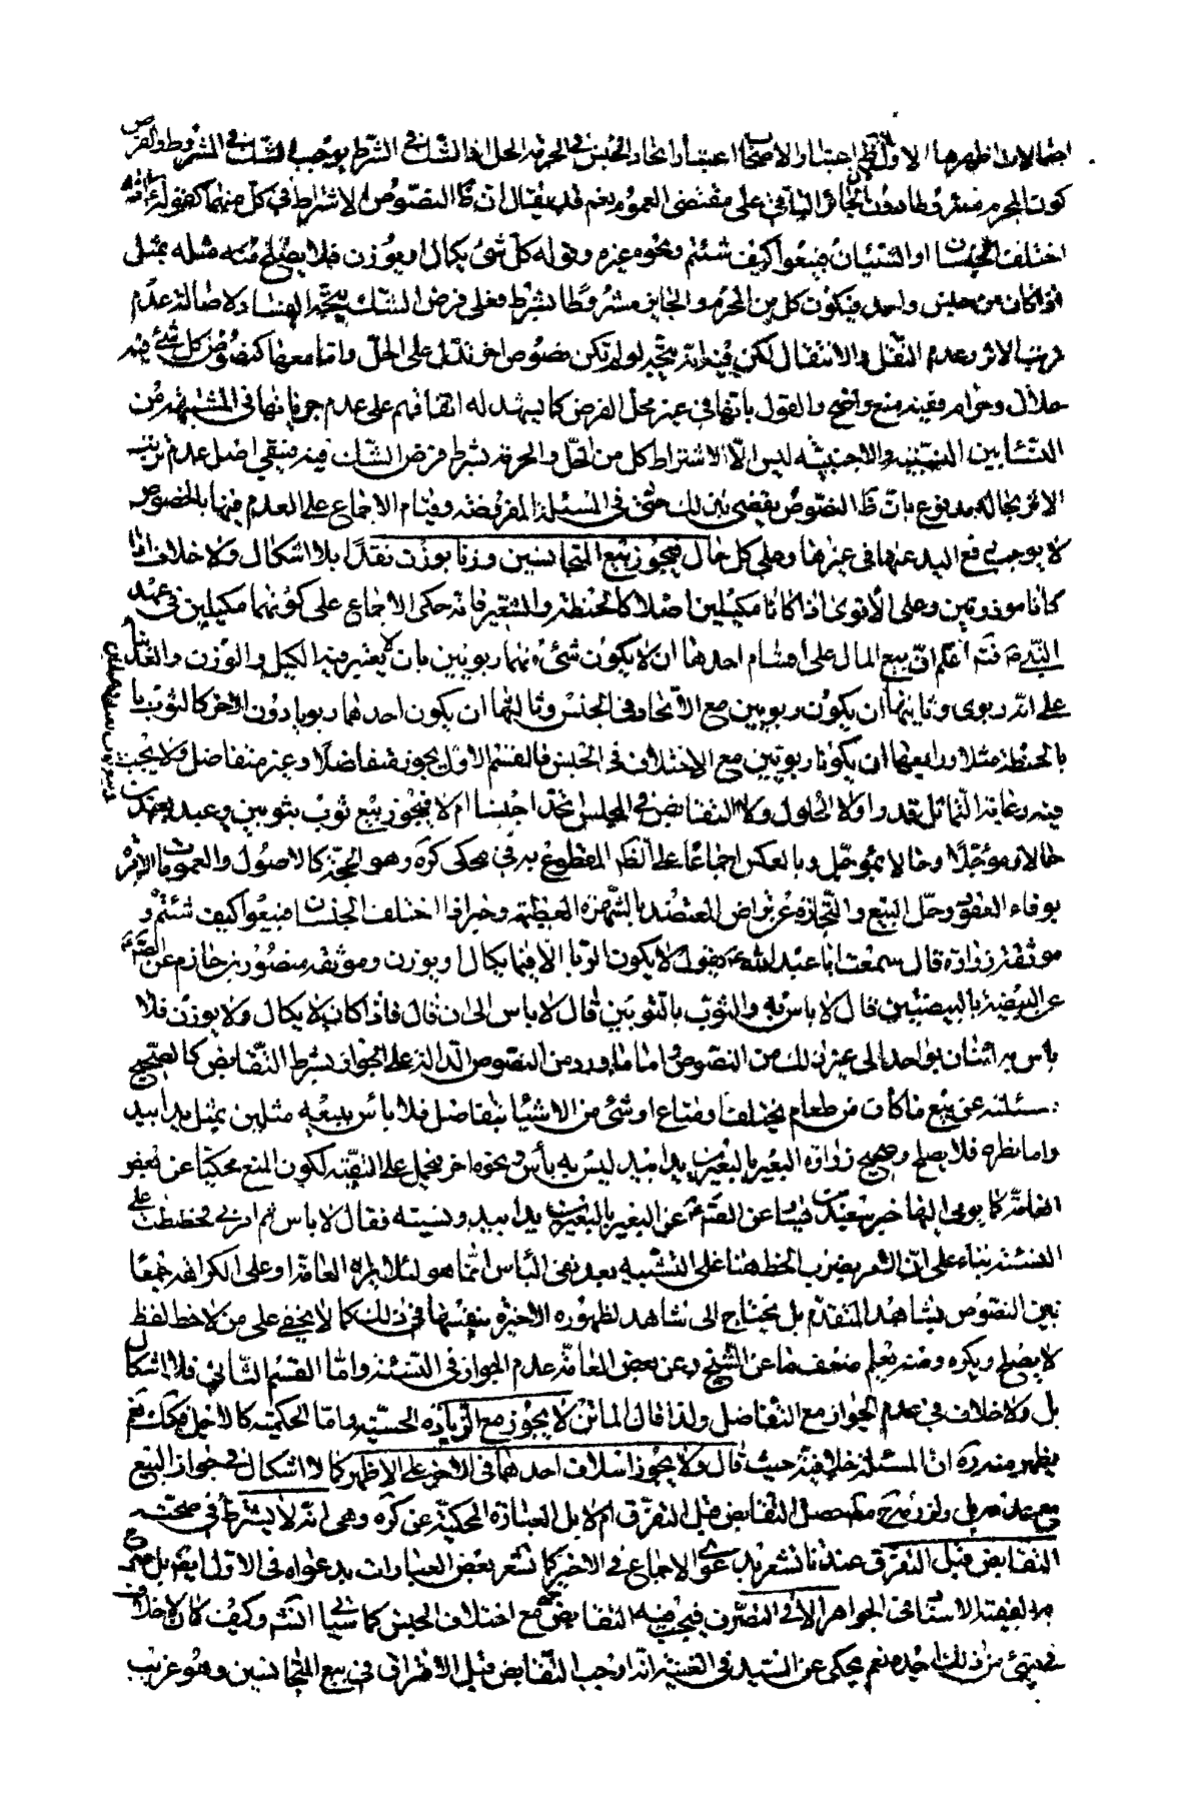 احتمالات اظهرها الاول لان اعتبار الاصحاب اعتبار اتحاد الجنس في الحرمة لا الحل اذ الشك في الشرط يوجب الشك في المشروط والفرض
كون المحرم مشروطا دون الجائز الباقي على مقتضى العموم نعم قد يقال ان ظ النصوص الاشتراط في كل منهما كقوله اذا
اختلف الجنسان او الشيئان فبيعوا كيف شئتم ونحوه غيره وقوله كل شئ يكال او يوزن فلا يصلح منه مثله بمثل
اذا كان من جنس واحد فيكون كل من المحرم والجايز مشروطا بشرط فعلى فرض الشك يتجه الفساد لاصالة عدم
ترتب الاثر وعدم النقل والانتقال لكن فيه انه يتجه لو لم تكن نصوص اخر تدل على الحل واما معها كنصوص كل شئ فيه
حلال وحرام ففيه منع واضح والقول بانها في غير محل الفرض كما يشهد له اتفاقهم على عدم جريانها في المشتبهة من
النساء بين النسبية والاجنبية ليس الا لاشتراط كل من الحل والحرمة بشرط فرض الشك فيه فيبقى اصل عدم ترتب
الاثر بحاله مدفوع بان ظ النصوص يقضى بذلك حتى في المسئلة المفروضة وقيام الاجماع على العدم فيها بالخصوص
لا يوجب رفع اليد عنها في غيرها وعلى كل حال فيجوز بيع المتجانسين وزنا بوزن نقدا بلا اشكال ولا خلاف اذا
كانا موزونين وعلى الاقوى اذا كانا مكيلين اصلا كالحنطة والشعير فانه حكى الاجماع على كونهما مكيلين في عهد
النبي ص ثم اعلم ان بيع المال على اقسام احدها ان لا يكون شئ منهما ربويين بان لا يعتبر فيه الكيل والوزن والعد بناء
على انه ربوى وثانيها ان يكون ربويين مع الاتحاد في الجنس وثالثها ان يكون احدهما ربويا دون الاخر كالثوب
بالحنطة مثلا ورابعها ان يكونا ربويين مع الاختلاف في الجنس فالقسم الاول يجوز متفاضلا وغير متفاضل ولا يجب
فيه رعاية التماثل قدرا ولا الحلول ولا التقابض في المجلس اتحدا جنسا ام لا فيجوز بيع ثوب بثوبين وعبد بعبدين
حالا ومؤجلا وحالا بمؤجل وبالعكس اجماعا على الظم المقطوع به في محكى كره وهو الحجة كالاصول والعمومات الامرة
بوفاء العقود وحل البيع والتجارة عن تراض المعتضد بالشهرة العظيمة وخبر اذا اختلف الجنسان فبيعوا كيف شئتم و
موثقة زرارة قال سمعت ابا عبد الله ع يقول لا يكون الربا الا فيما يكال او يوزن وموثقة منصور بن حازم عن الصم ع
عن البيضة بالبيضتين قال لا باس به والثوب بالثوبين قال لا باس الى ان قال فاذا كان لا يكال ولا يوزن فلا
باس به اثنان بواحد الى غير ذلك من النصوص واما ما ورد من النصوص الدالة على الجواز بشرط التقابض كالصحيح
سئلته عن بيع ما كان من طعام مختلف او متاع او شئ من الاشياء يتفاضل فلا باس ببيعه مثلين بمثل يدا بيد
واما نظرة فلا يصلح وصحيح زرارة البعير بالبعيرين يدا بيد ليس به بأس ونحوه اخر فيحمل على التقية لكون المنع محكيا عن بعض
العامة كما يومى اليها خبر سعيد بن يسار عن الصم ع عن البعير بالبعيرين يدا بيد ونسيئة فقال لا باس ثم امرنى فخططت على
النسئة بناء على ان الامر بضرب الخط هنا على النسية بعد نفى البأس انما هو لئلا يراه العامة او على الكراهة جمعا
بين النصوص بشاهد المتقدم بل يحتاج الى شاهد لظهوره الاخيرة بنفسها في ذلك كما لا يخفى على من لاحظ لفظ
لا يصلح ويكره ومنه يعلم ضعف ما عن الشيخ وعن بعض العامة عدم الجواز في النسئة واما القسم الثاني فلا اشكال
بل ولا خلاف في عدم الجواز مع التفاضل ولذا قال الماتن لا يجوز مع الزيادة الحسية واما الحكمية كالاجل فكك نعم
يظهر منه ره ان المسئلة خلافية حيث قال ولا يجوز اسلاف احدهما في الاخر على الاظهر كما لا اشكال في جواز البيع
مع حصل التقابض قبل التفرق ام لا بل العبارة المحكية عن كره وهى انه لا يشترط في صحته
التقابض قبل التفرق عندنا تشعر بدعوى الاجماع في الاخير كما تشعر بعض العبارات بدعواه في الاول ايضا بل
الا في الصرف فيجب فيه التقابض مع اختلاف الجنس كما سيأتي انشم وكيف كان لا خلاف
في شئ من ذلك اجده نعم يحكى عن السيد في الغنية انه اوجب التقابض قبل الافتراق في بيع المتجانسين وهو غريب